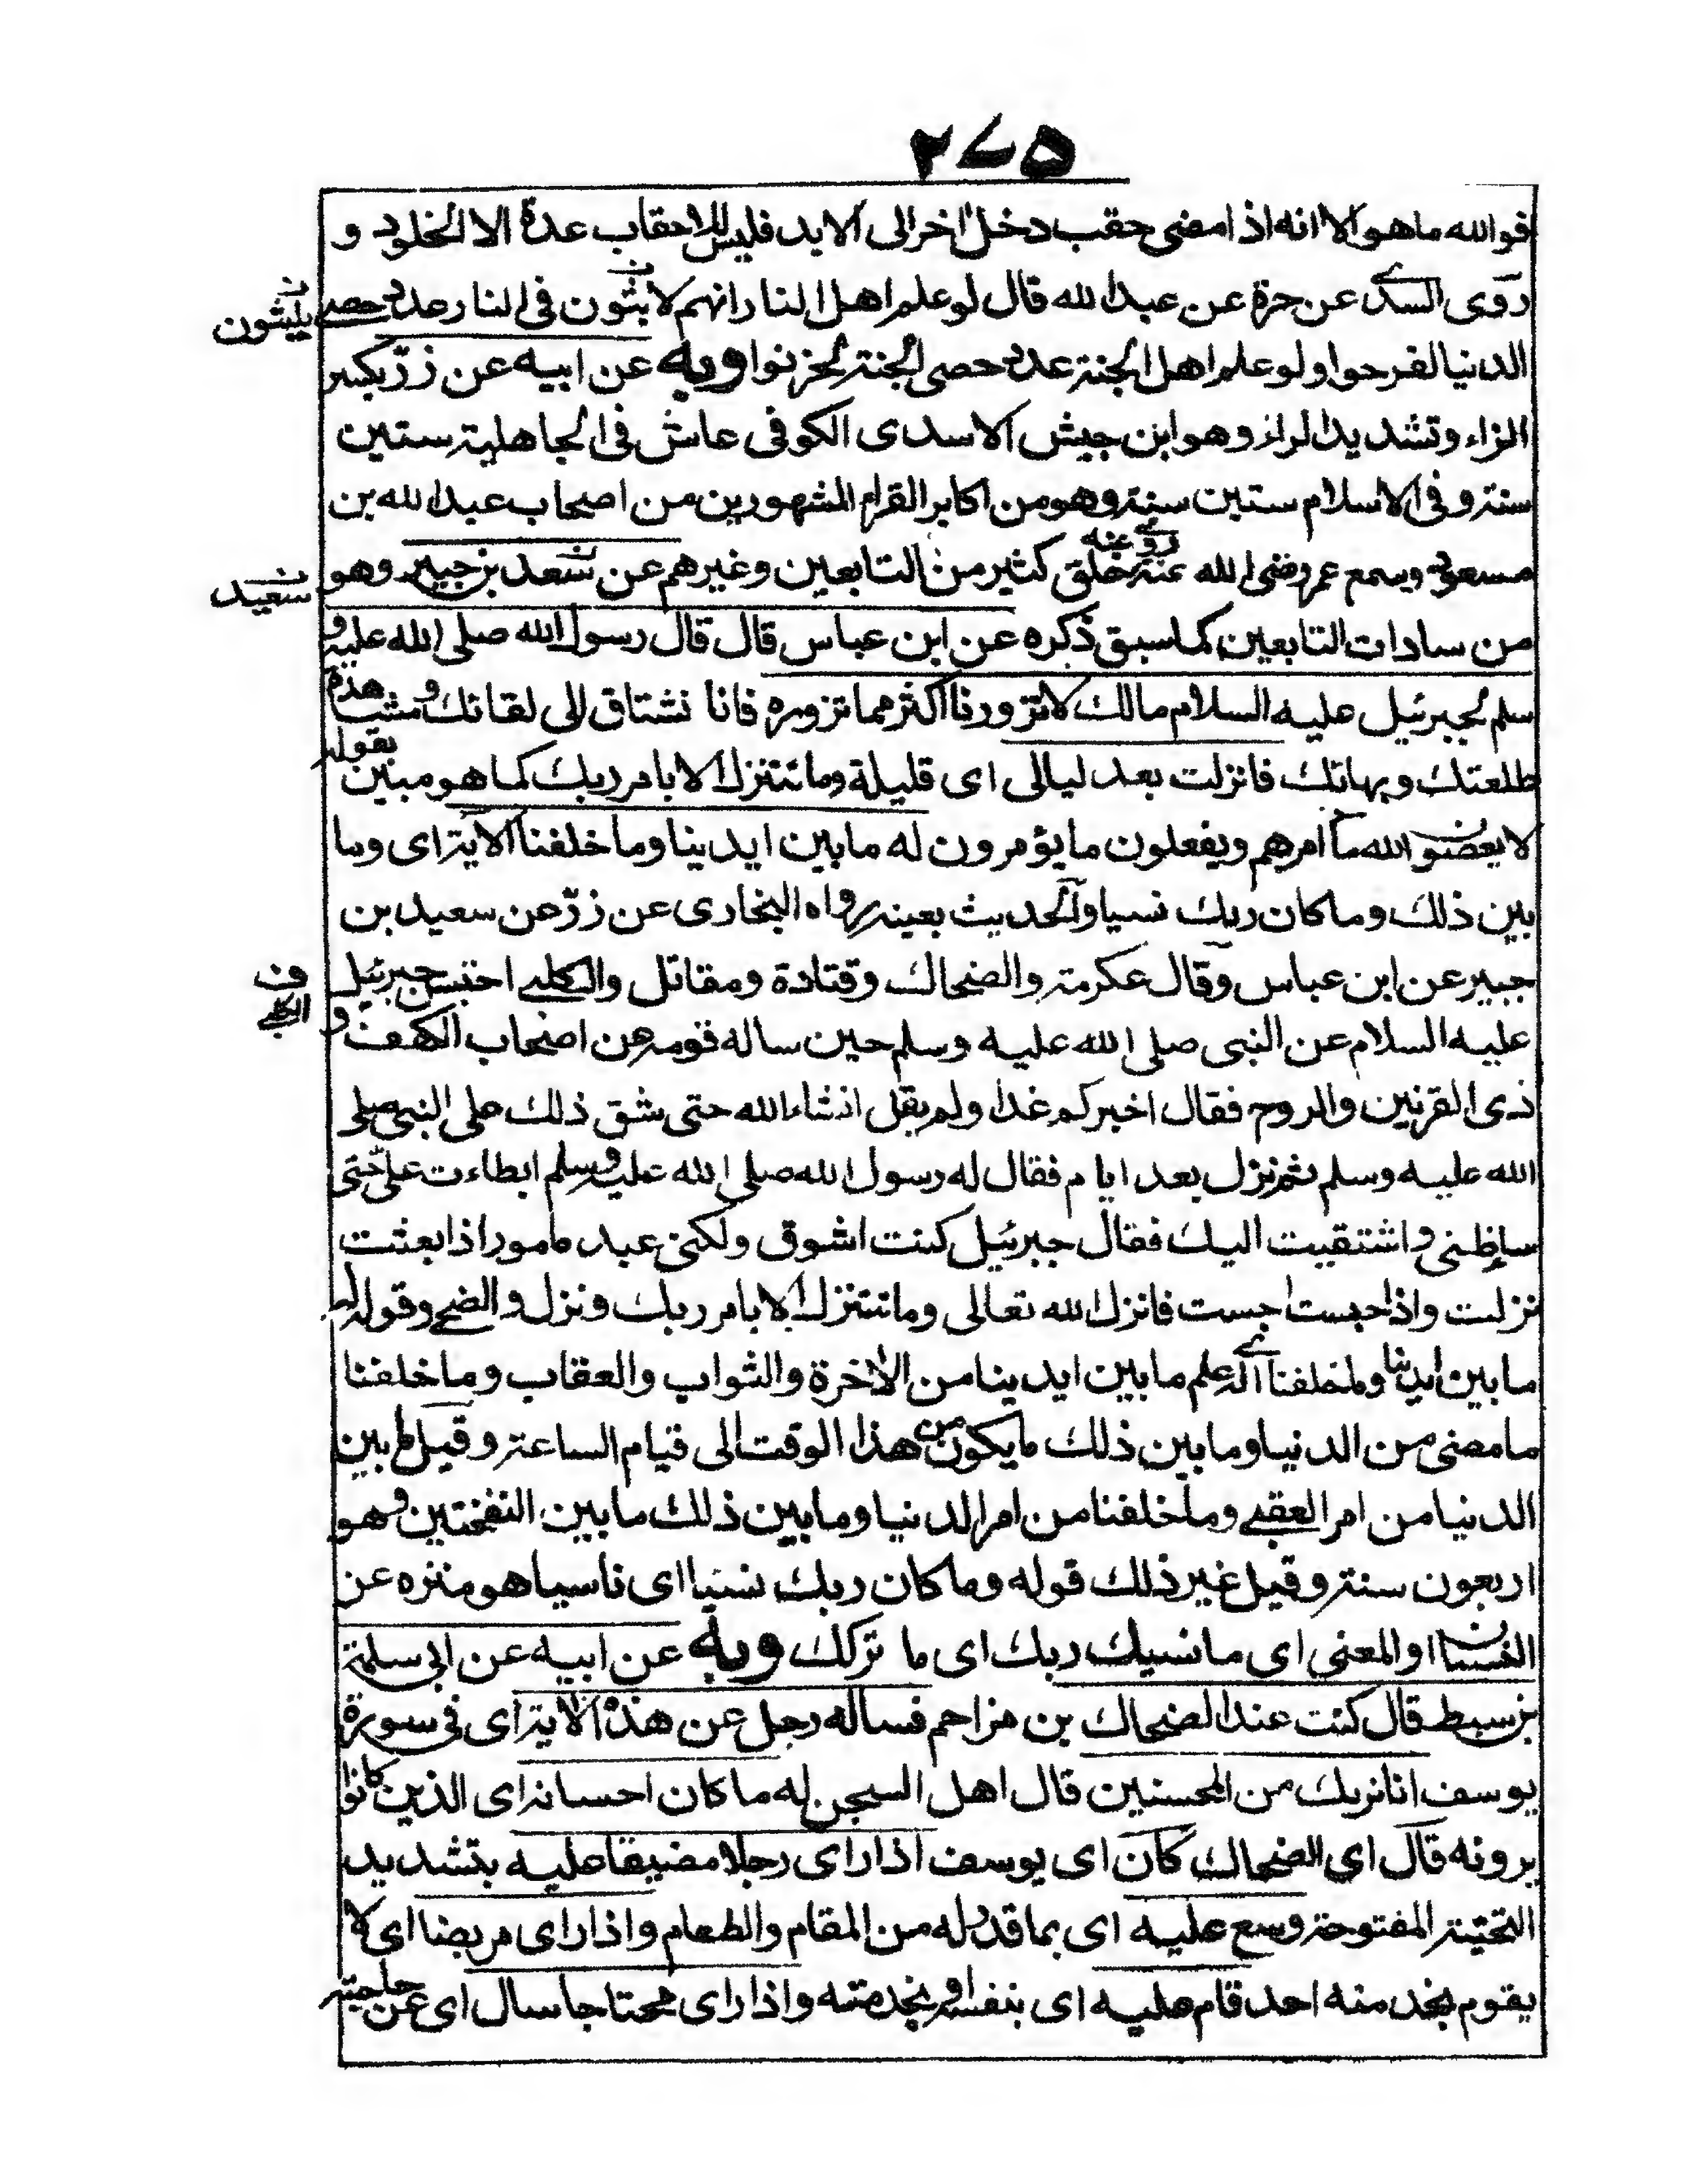 ٢٧٥
فوالله ما هو الا انه اذا مضى حقب دخل اخر الى الابد فليس للاحقاب عدة الا الخلود و
روى السدى عن مرة عن عبد الله قال لو علم اهل النار انهم لا يبثون فى النار عدد حصى
يلبثون
الدنيا لفرحوا ولو علم اهل الجنة عدد حصى الجنة لحزنوا وبه عن ابيه عن زرّ بكسر
الزاء وتشديد الراء وهو ابن حبيش الاسدى الكوفى عاش فى الجاهلية ستين
سنة و فى الاسلام ستين سنة وهو من اكابر القراء المشهورين من اصحاب عبد الله بن
مسعود وسمع عمر رضى الله عنه روى عنه خلق كثير من التابعين وغيرهم عن سعد بن جبير وهو
سعيد
من سادات التابعين كما سبق ذكره عن ابن عباس قال قال رسول الله صلى الله عليه و
سلم لجبرئيل عليه السلام مالك لا تزورنا اكثر مما تزوره فانا نشتاق الى لقائك ومشاهدة
طلعتك وبهائك فانزلت بعد ليالى اى قليلة وما نتنزل الا بامر ربك كما هو مبين بقوله
لا يعصون الله ما امرهم ويفعلون ما يؤمرون له ما بين ايدينا وما خلفنا الآية اى وما
بين ذلك وما كان ربك نسيا والحديث بعينه رواه البخارى عن زرّ عن سعيد بن
جبير عن ابن عباس وقال عكرمة والضحاك وقتادة ومقاتل والكلبى احتبس جبرئيل
ف الكلبى
عليه السلام عن النبى صلى الله عليه وسلم حين ساله قومه عن اصحاب الكهف و
ذى القرنين والروح فقال اخبركم غدا ولم يقل انشاءالله حتى شق ذلك على النبى صلى
الله عليه وسلم ثم نزل بعد ايام فقال له رسول الله صلى الله عليه وسلم ابطاءت علىّ حتى
ساء ظنى واشتقيت اليك فقال جبرئيل كنت اشوق ولكنى عبد مامور اذا بعثت
نزلت واذا حبست احبست فانزل الله تعالى وما نتنزل الا بامر ربك ونزل والضحى وقوله له
ما بين ايدينا وما خلفنا اى له علم ما بين ايدينا من الاخرة والثواب والعقاب وما خلفنا
ما مضى من الدنيا وما بين ذلك ما يكون من هذا الوقت الى قيام الساعة وقيل ما بين
الدنيا من امر العقبى وما خلفنا من امر الدنيا وما بين ذلك ما بين النفختين وهو
اربعون سنة وقيل غير ذلك قوله وما كان ربك نسيا اى ناسيا هو منزه عن
النسيان او المعنى اى ما نسيك ربك اى ما تركك وبه عن ابيه عن ابى سلمة
بن سبط قال كنت عند الضحاك بن مزاحم فساله رجل عن هذه الآية اى فى سورة
يوسف انا نريك من المحسنين قال اهل السجن له ما كان احسانه اى الذين كانوا
يرونه قال اى الضحاك كان اى يوسف اذا راى رجلا مضيقا عليه بتشديد
التحتية المفتوحة وسع عليه اى بما قدر له من المقام والطعام واذا راى مريضا اى لا
يقوم بخدمته احد قام عليه اى بنفسه او بخدمته واذا راى محتاجا سال اى عن حاجته